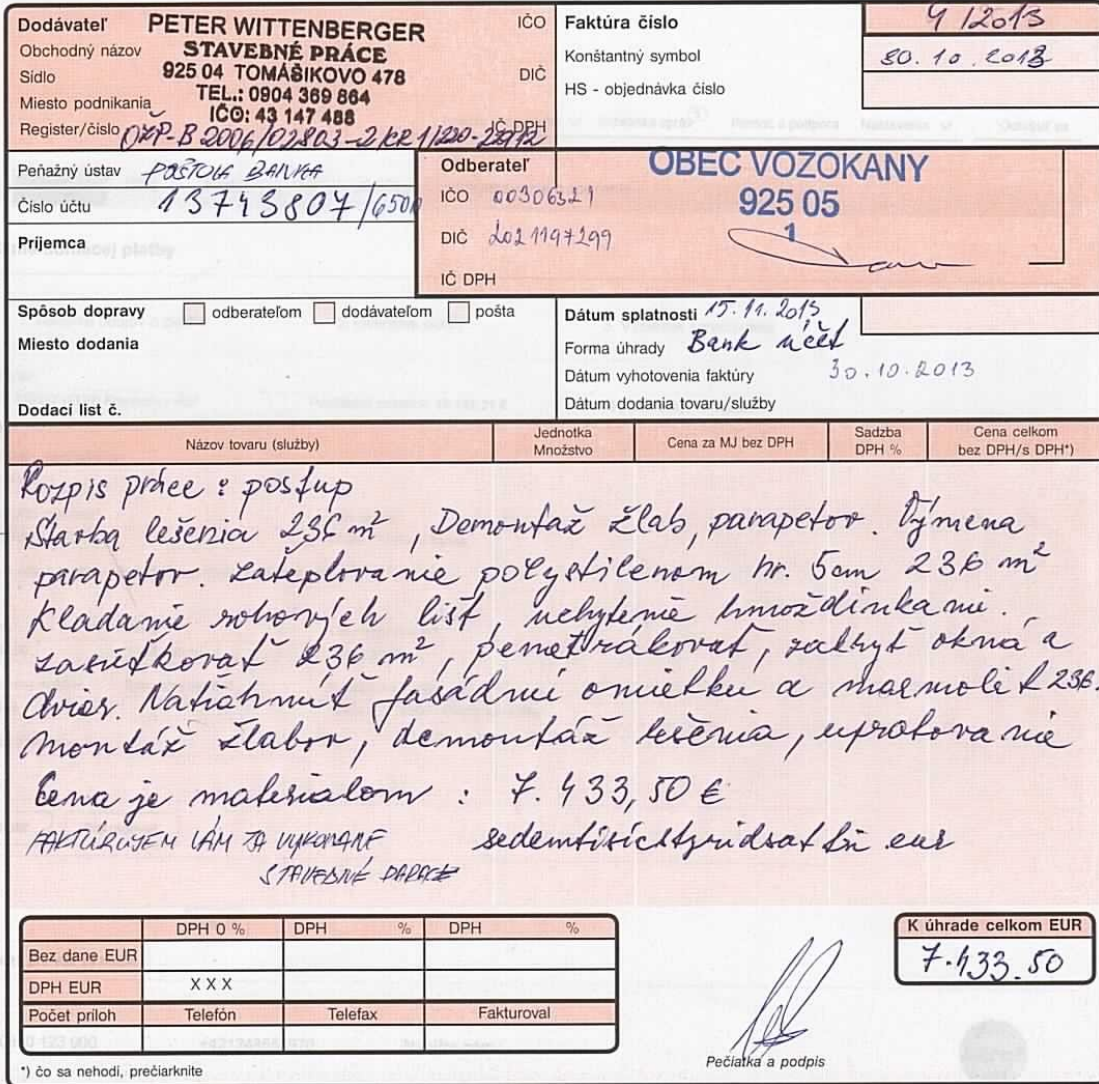 Dodávateľ PETER WITTENBERGER IČO
Obchodný názov STAVEBNÉ PRÁCE
Sídlo 925 04 TOMÁŠIKOVO 478 DIČ
Miesto podnikania TEL.: 0904 369 864
IČO: 43 147 488
Register/číslo OŽP-B 2006/02803-2/KR1/220- IČ DPH
Faktúra číslo 4/2013
Konštantný symbol 30.10.2013
HS - objednávka číslo
Peňažný ústav POŠTOVÁ BANKA
Číslo účtu 13743807/6500
Príjemca
Odberateľ OBEC VOZOKANY
IČO 00306321 925 05
DIČ 2021197299 1
IČ DPH
Spôsob dopravy odberateľom dodávateľom pošta
Miesto dodania
Dodací list č.
Dátum splatnosti 15.11.2013
Forma úhrady Bank účet
Dátum vyhotovenia faktúry 30.10.2013
Dátum dodania tovaru/služby
Názov tovaru (služby) Jednotka Množstvo Cena za MJ bez DPH Sadzba DPH % Cena celkom bez DPH/s DPH*)
Rozpis práce : postup
Starba lešenia 236 m², Demontaž žlab, parapetov. Výmena
parapetov. Zateplovanie polystilenom hr. 5cm 236 m²
Kladanie rohových lišt, uchytenie hmoždinkami.
zasíťkovať 236 m², penetrákovať, zakryt okná a
dvier. Natiahnuť fasádnu omietku a marmolit 236.
montáž žlabov, demontáž lešenia, upratovanie
Cena je materialom : 7.433,50 €
FAKTÚRUJEM VÁM ZA VYKONANÉ
STAVEBNÉ
DPH 0 % DPH % DPH %
Bez dane EUR
DPH EUR X X X
Počet príloh Telefón Telefax Fakturoval
*) čo sa nehodí, prečiarknite
Pečiatka a podpis
K úhrade celkom EUR
7.433.50